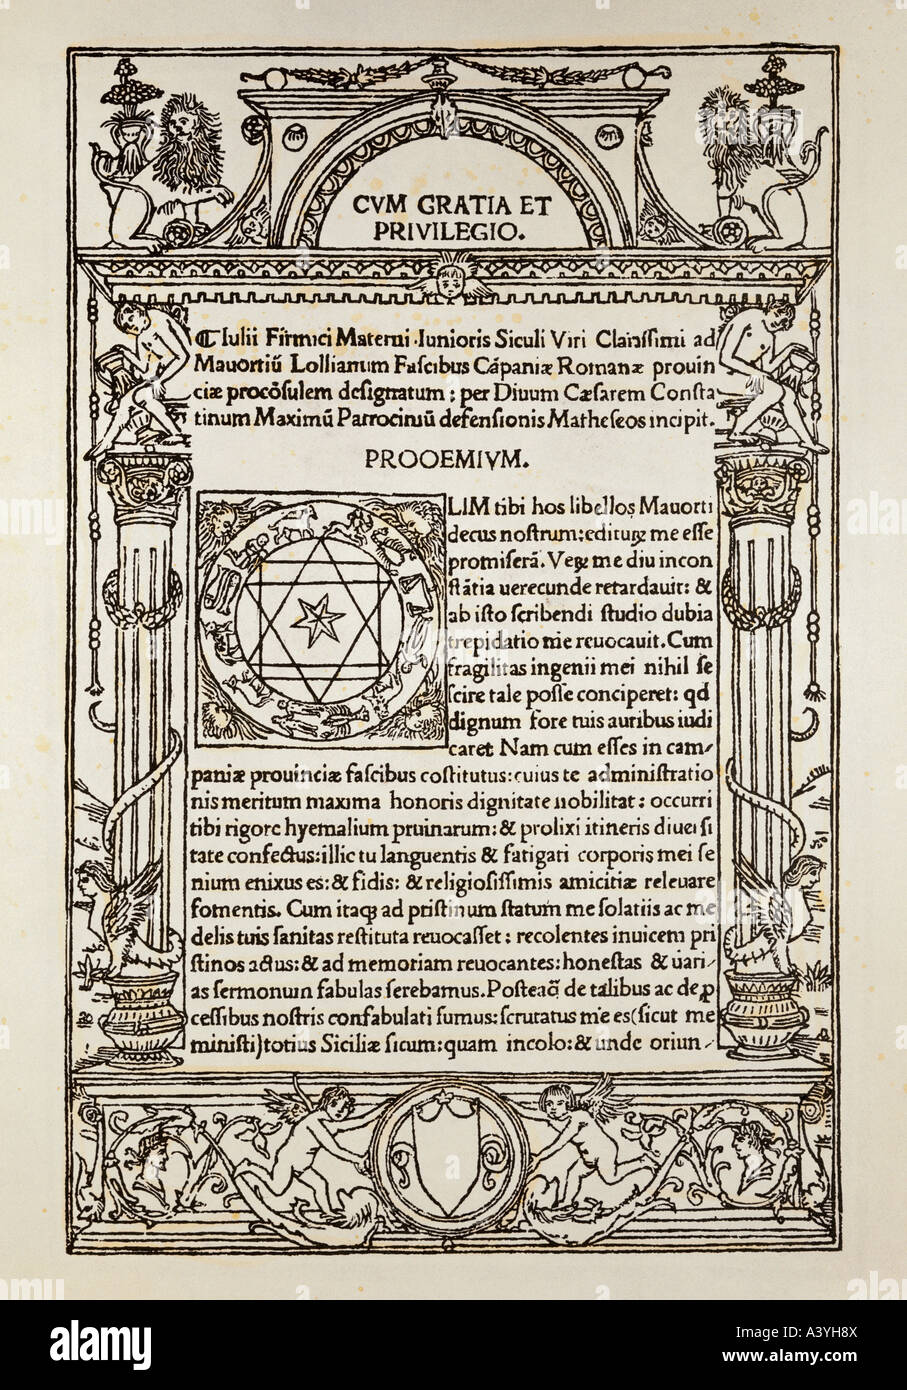 CVM GRATIA ET
PRIVILEGIO.
¶ Iulii Firmici Materni Iunioris Siculi Viri Clarissimi ad
Mauortiū Lollianum Fascibus Cāpaniæ Romanæ prouin
ciæ procōsulem designatum: per Diuum Cæsarem Consta
tinum Maximū Parrociniū defensionis Matheseos incipit.
PROOEMIVM.
LIM tibi hos libellos Mauorti
decus nostrum: editurꝫ me esse
promiserā. Veꝝ me diu incon
stātia uerecunde retardauit: &
ab isto scribendi studio dubia
trepidatio me reuocauit. Cum
fragilitas ingenii mei nihil se
scire tale posse conciperet: qd
dignum fore tuis auribus iudi
caret Nam cum esses in cam-
paniæ prouinciæ fascibus cōstitutus: cuius te administratio
nis meritum maxima honoris dignitate nobilitat: occurri
tibi rigore hyemalium pruinarum: & prolixi itineris diuersi
tate confectus: illic tu languentis & fatigati corporis mei se
nium enixus es: & fidis: & religiosissimis amicitiæ releuare
fomentis. Cum itaqꝫ ad pristinum statum me solatiis ac me
delis tuis sanitas restituta reuocasset: recolentes inuicem pri
stinos actus: & ad memoriam reuocantes: honestas & uari-
as sermonum fabulas serebamus. Posteaq̄ de talibus ac de ꝓ
cessibus nostris confabulati sumus: scrutatus me es (sicut me
ministi) totius Siciliæ sicum: quam incolo: & unde oriun-
alamy
Image ID: A3YH8X
www.alamy.com